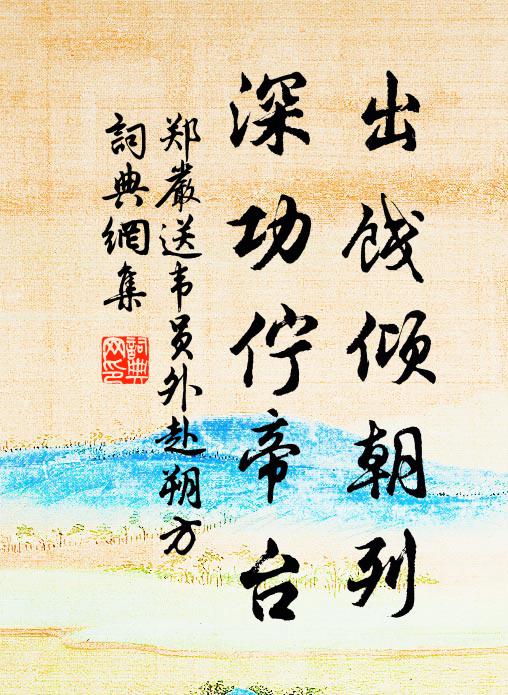 出饯倾朝列
深功伫帝台
郑嚴送韦员外赴朔方
詞典網集
詞典
网印